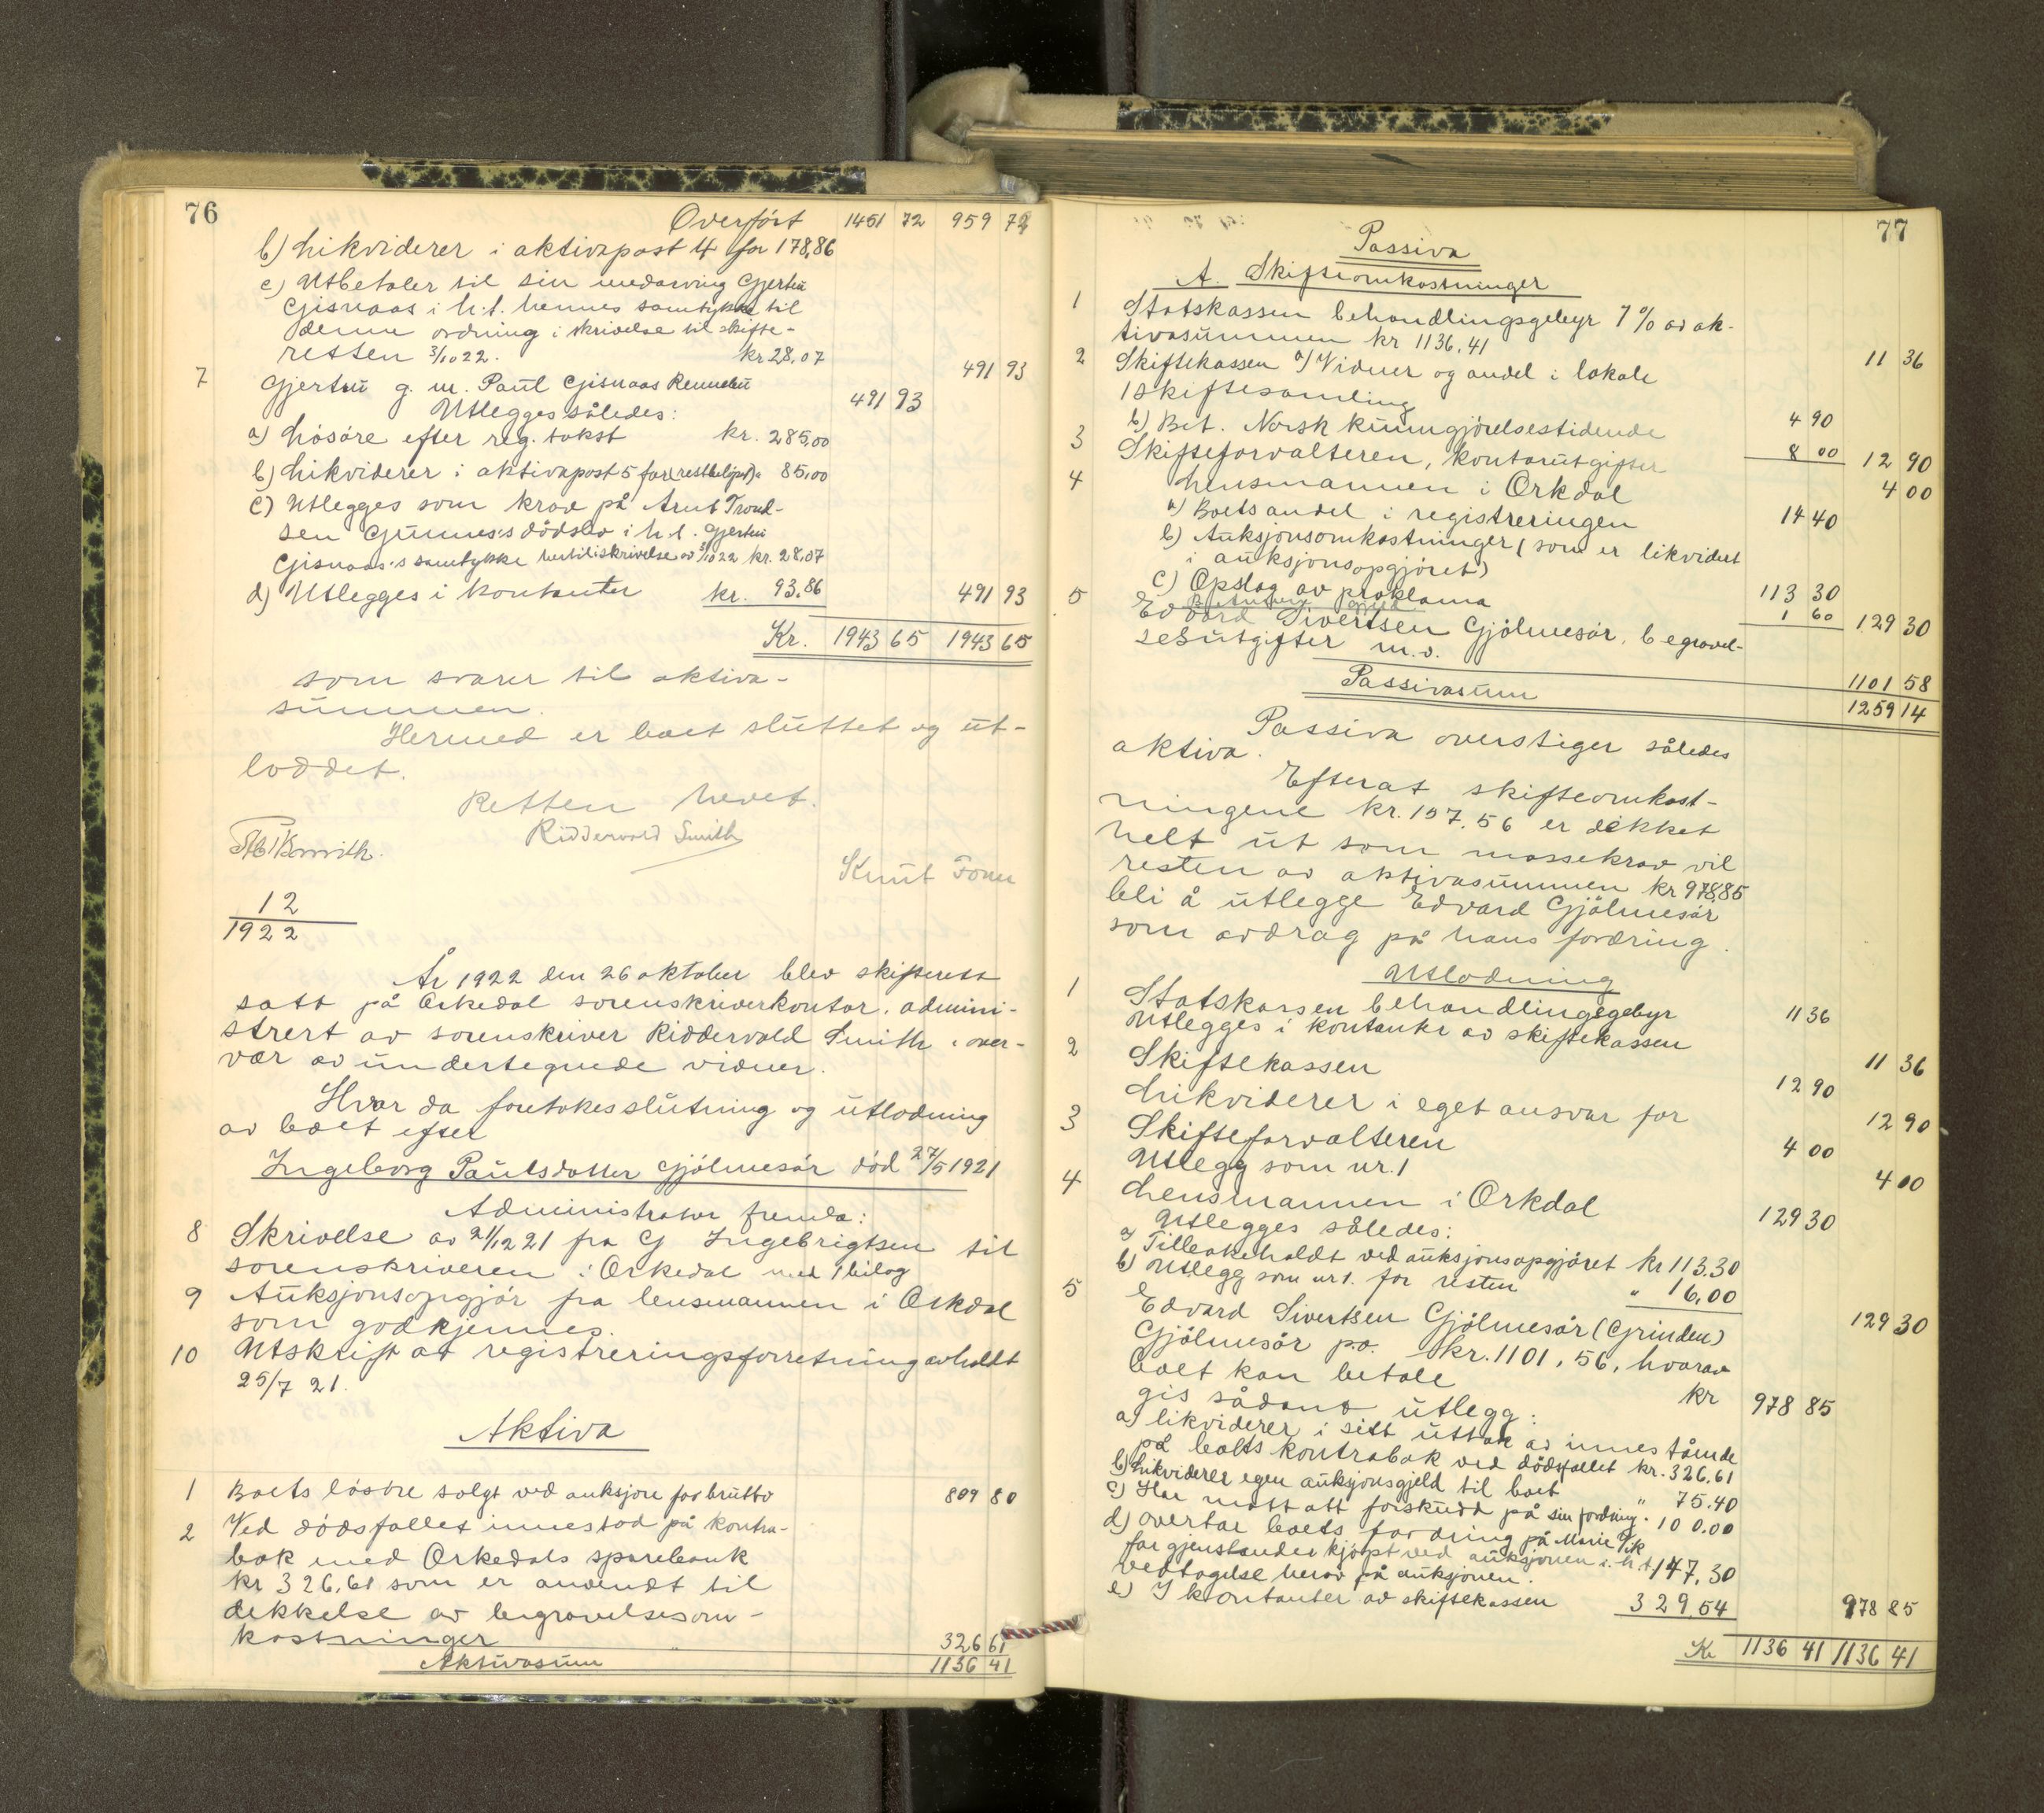 76
Overført 1451 72 959 72
b) Likviderer i aktivapost 4 for 178,86
c) Utbetaler til sin medarving Gjertru
Gisnaas i h.t. hennes samtykke til
denne ordning i skrivelse til skifte-
retten 3/10 22. kr 28,07
491 93
7 Gjertru g. m. Paul Gisnaas Rennebu
491 93
Utlegges således:
a) Løsøre efter reg. takst kr. 285,00
b) Likviderer i aktivapost 5 for (restbeløpet) " 85,00
c) Utlegges som krav på Arnt Trond-
sen Gunnes's dødsbo i h.t. Gjertru
Gisnaas's samtykke hertil i skrivelse av 3/10 22 kr. 28,07
d) Utlegges i kontanter kr. 93,86 491 93
Kr. 1943 65 1943 65
som svarer til aktiva-
summen.
Hermed er boet sluttet og ut-
loddet.
Retten hevet.
Ridderwold Smith
Knut Foner
12
1922
År 1922 den 26 oktober blev skifterett
satt på Orkedal sorenskriverkontor, admini-
strert av sorenskriver Riddervold Smith i over-
vær av undertegnede vidner.
Hvor da foretokes slutning og utlodning
av boet efter
Ingeborg Paulsdotter Gjølmesår død 27/5 1921
Administrator fremla:
8 Skrivelse av 21/12 21 fra G Ingebrigtsen til
sorenskriveren i Orkedal med 1 bilag
9 Auksjonsopgjør fra lensmannen i Orkdal
som godkjennes.
10 Utskrift av registreringsforretning avholdt
25/7 21.
Aktiva
1 Boets løsøre solgt ved auksjon for brutto 809 80
2 Ved dødsfallet innestod på kontra-
bok med Orkedals sparebank
kr 326,61 som er anvendt til
dekkelse av begravelsesom-
kostninger " 326 61
Aktivasum 1136 41
77
Passiva
A. Skifteomkostninger
1 Statskassen behandlingsgebyr 1% av ak-
tivasummen kr 1136,41
11 36
2 Skiftekassen a) Vidner og andel i lokale
1 skiftesamling
4 90
b) Bet. Norsk kunngjørelsestidende
8 00 12 90
3 Skifteforvalteren, kontorutgifter
4 00
4 Lensmannen i Orkdal
a) Boets andel i registreringen 14 40
b) Auksjonsomkostninger (som er likvidert
i auksjonsopgjøret)
113 30
c) Opslag av proklama
1 60 129 30
5 Edvard Sivertsen Gjølmesår, begravel-
sesutgifter m.v.
1101 58
Passivasum 1259 14
Passiva overstiger således
aktiva.
Efterat skifteomkost-
ningene kr. 157,56 er dekket
helt ut som massekrav vil
resten av aktivasummen kr 978,85
bli å utlegge Edvard Gjølmesår
som avdrag på hans fordring.
Utlodning
1 Statskassen behandlingsgebyr 11 36
Utlegges i kontanter av skiftekassen
11 36
2 Skiftekassen
12 90
Likviderer i eget ansvar for
12 90
3 Skifteforvalteren
4 00
Utlegg som nr. 1
4 00
4 Lensmannen i Orkdal
129 30
Utlegges således:
a) Tilbakeholdt ved auksjonsopgjøret kr 113,30
b) Utlegg som nr 1. for resten " 16,00
129 30
5 Edvard Sivertsen Gjølmesår (Grinden)
Gjølmesår p.o. kr. 1101,56, hvorav
boet kan betale kr 978 85
gis sådant utlegg:
a) likviderer i sitt uttak av innestående
på boets kontrabok ved dødsfallet kr. 326,61
b) Likviderer egen auksjonsgjeld til boet " 75,40
c) Har mottatt forskudd på sin fordring " 100,00
d) overtar boets fordring på Marie
for gjenstander kjøpt ved auksjonen i h.t.
vedtagelse herav på auksjonen. 147,30
e) I kontanter av skiftekassen 329,54 978 85
Kr 1136 41 1136 41